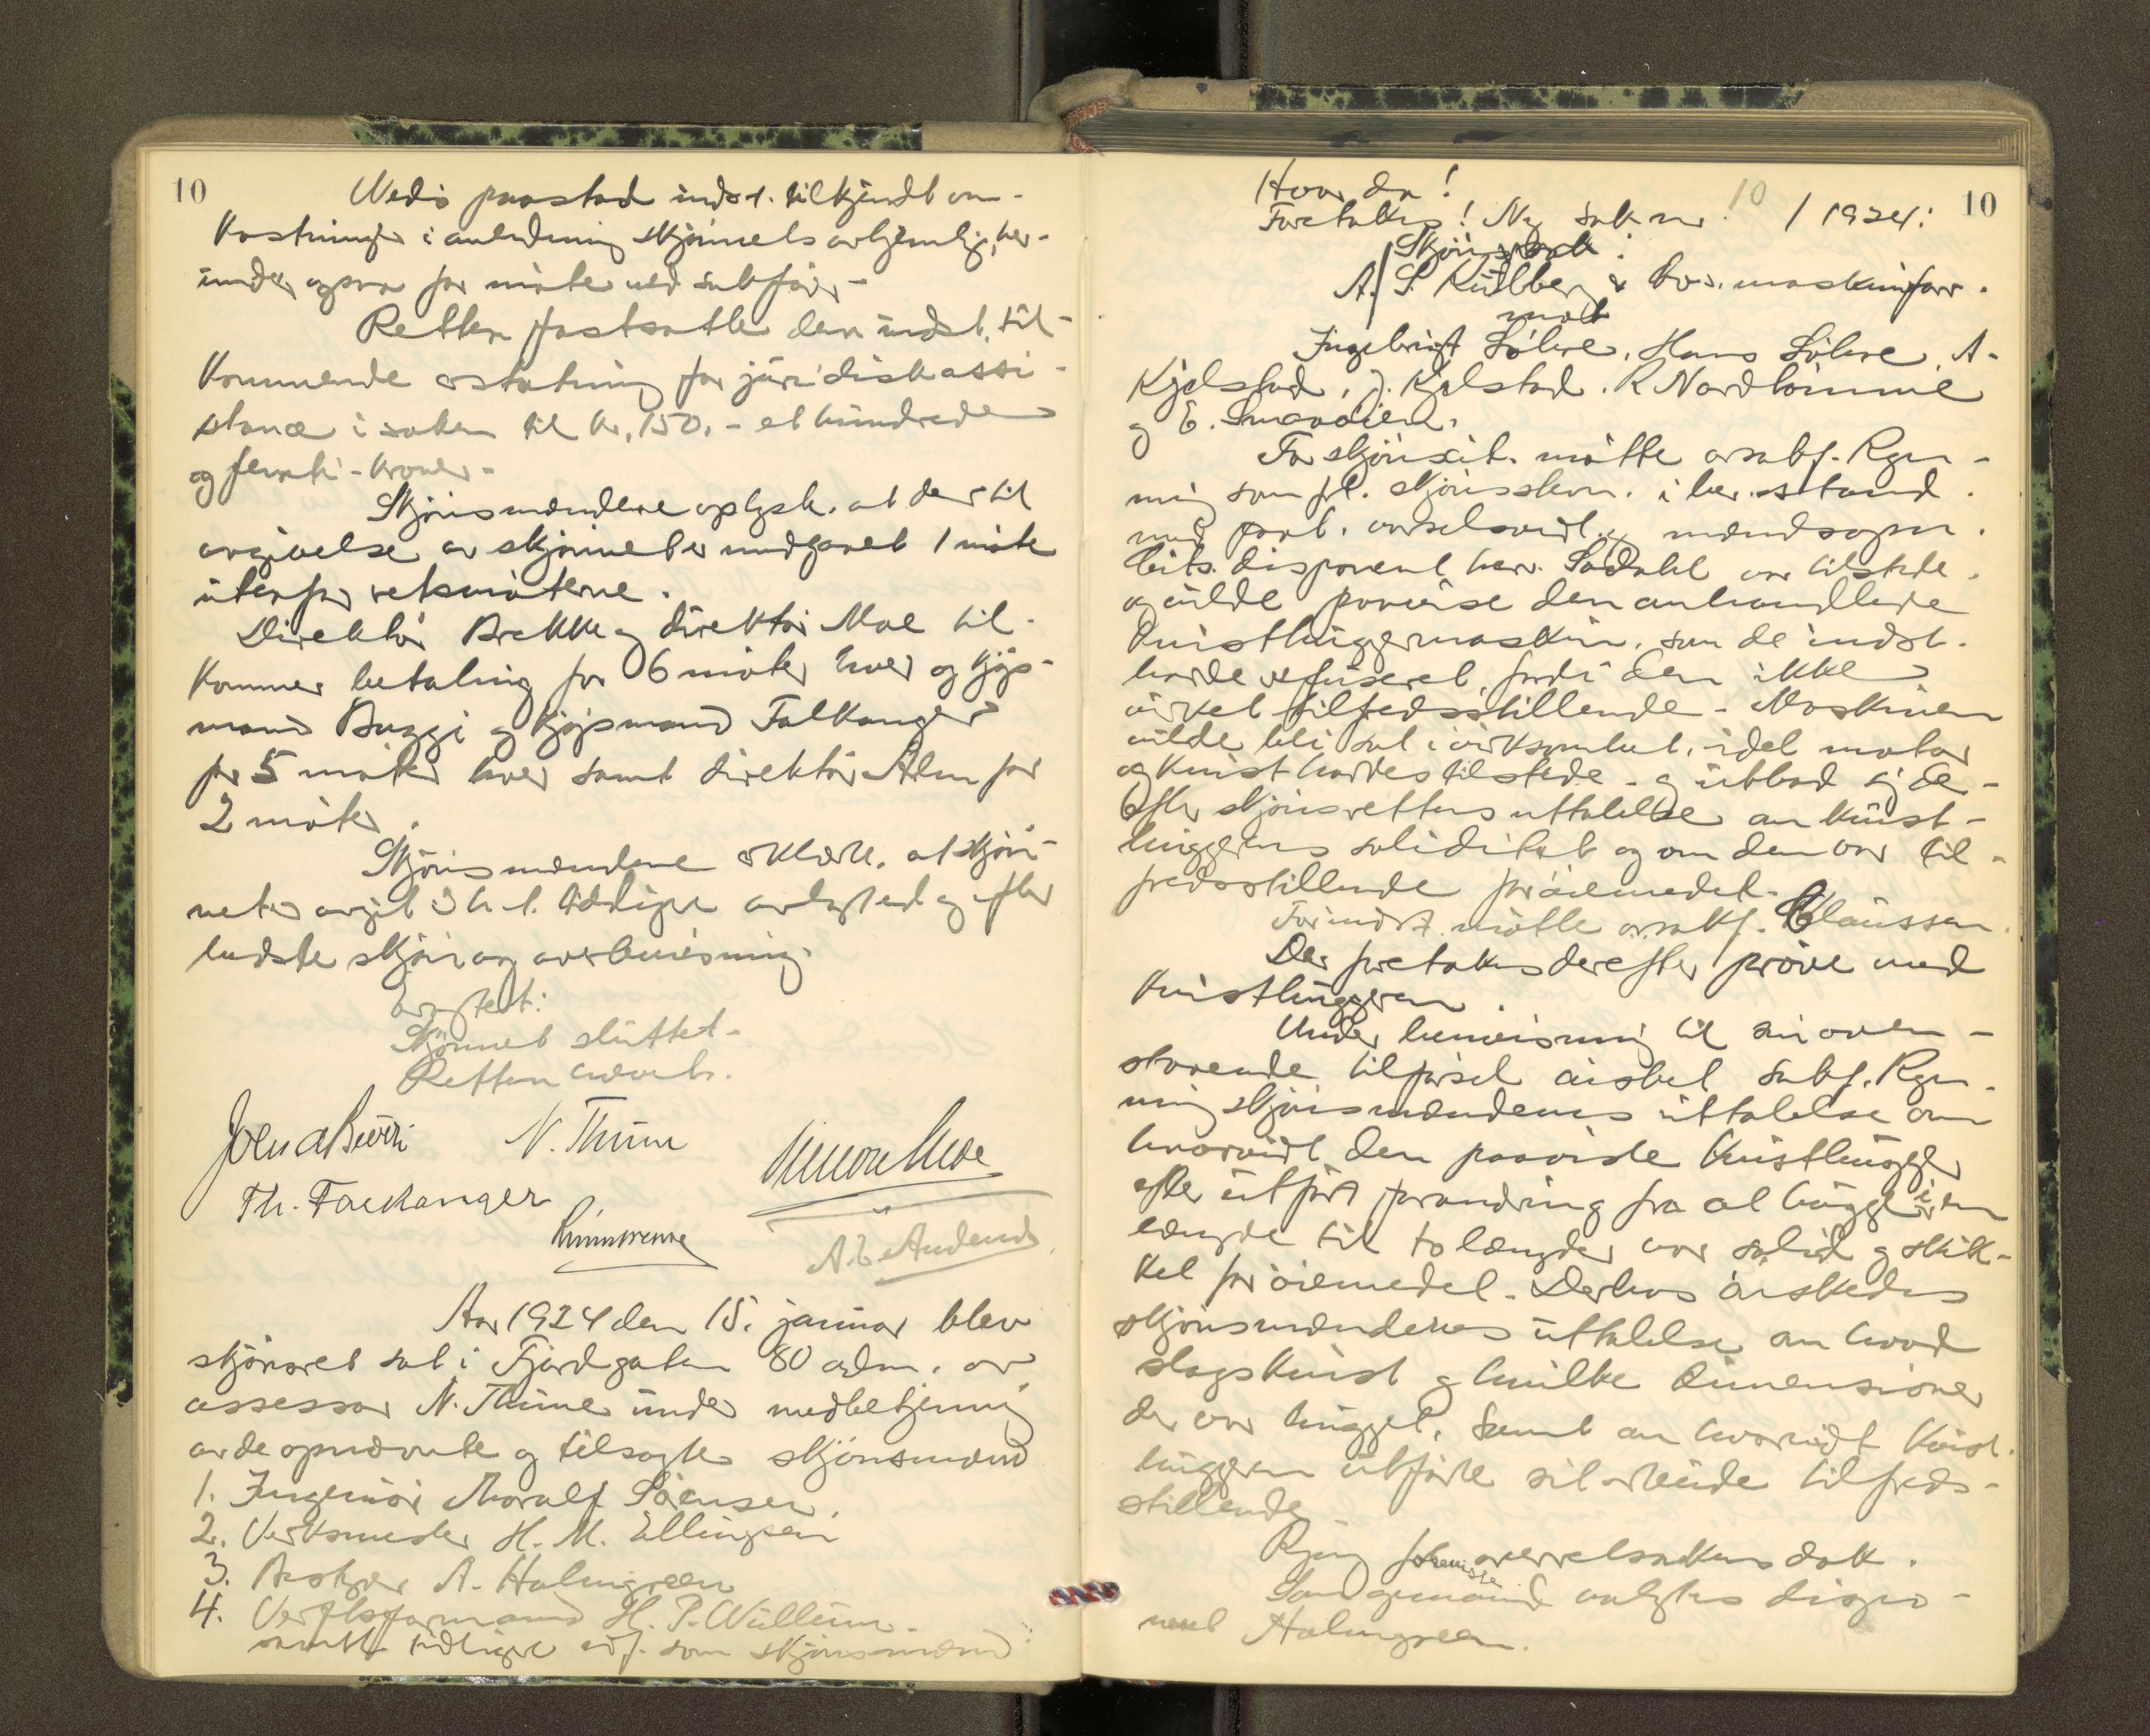 10
Ved's paastad indst. tilkjendt om-
kostninger i anledning skjønnets avhjemling, her-
under ogsaa for møte ved sakfører-
Retten fastsatte den indst. til-
kommende erstatning for juridisk assi-
stance i saken til kr. 150.- et hundrede
og femti - kroner -
Skjønsmændene oplyste, at der til
avgivelse av skjønnet er medgaaet 1 møte
utenfor retsmøterne.
Direktør Brekke og direktør Moe til-
kommer betaling for 6 møter hver og kjøp-
mand Buggi og kjøpmand Falkanger
for 5 møter hver samt direktør Alm for
2 møter.
Skjønsmændene erklærte, at skjøn-
net er avgit i h. t. tidligere avlagt ed og efter
bedste skjøn og overbevisning.
Skjønnet sluttet -
Retten hævet.
N. Thune
Simon Moe
Th. Falkanger
Aar 1924 den 15. januar blev
skjønsret sat i Fjordgaten 80 av
assessor N. Thune under medbetjening
av de opnævnte og tilsagte skjønsmænd
1. Ingeniør Thoralf Sørensen.
2. Verksmester H. M. Ellingsen
3. Bestyrer A. Holmgreen
4. Verftsformand H. P. Wullum.
samtl. tidligere edf. som skjønsmænd
10
Hvorda!
Foretakes! Ny sak nr. 10 / 1924:
Skjønssak:
A/S Kulberg & Co's. maskinforr.
mot
Ingebrigt Løhre, Hans Løhre, A.
Kjelstad, J. Kjelstad, R. Nordtømme
og E. Smaaøien.
For skjønsrekv. møtte o.r.sakf. Ryn-
ning som frl. skjønsbeg.
med paat. varselsvidt. og mændsopn.
Cits. disponent herr Sødahl var tilstede
og vilde paavise den omhandlede
kvisthuggermaskin, som de indst.
havde refuseret, fordi den ikke
virket tilfredsstillende - Maskinen
vilde bli sat i virksomhet, idet motor
og kvist hades tilstede - og utbad sig de-
efter skjønsrettens uttalelse om kvist-
huggerens soliditet og om den var til-
fredsstillende for øiemedet.
For indst. møtte o.r.sakf. Claussen.
Der foretokes derefter prøve med
kvisthuggeren.
Under henvisning til sin oven-
staaende tilførsel æsket sakf. Ryn-
ning skjønsmændenes uttalelse om
hvorvidt den paaviste kvisthugger
efter utført forandring fra at hugge i en
længde til to længder var solid og skik-
ket for øiemedet. Derhos æskedes
skjønsmændenes uttalelse om hvad
slags kvist og hvilke dimensioner
der var hugget, samt om hvorvidt kvist-
huggeren utførte sit arbeide tilfreds-
stillende
Som formand valgtes dispo-
nent Holmgreen.